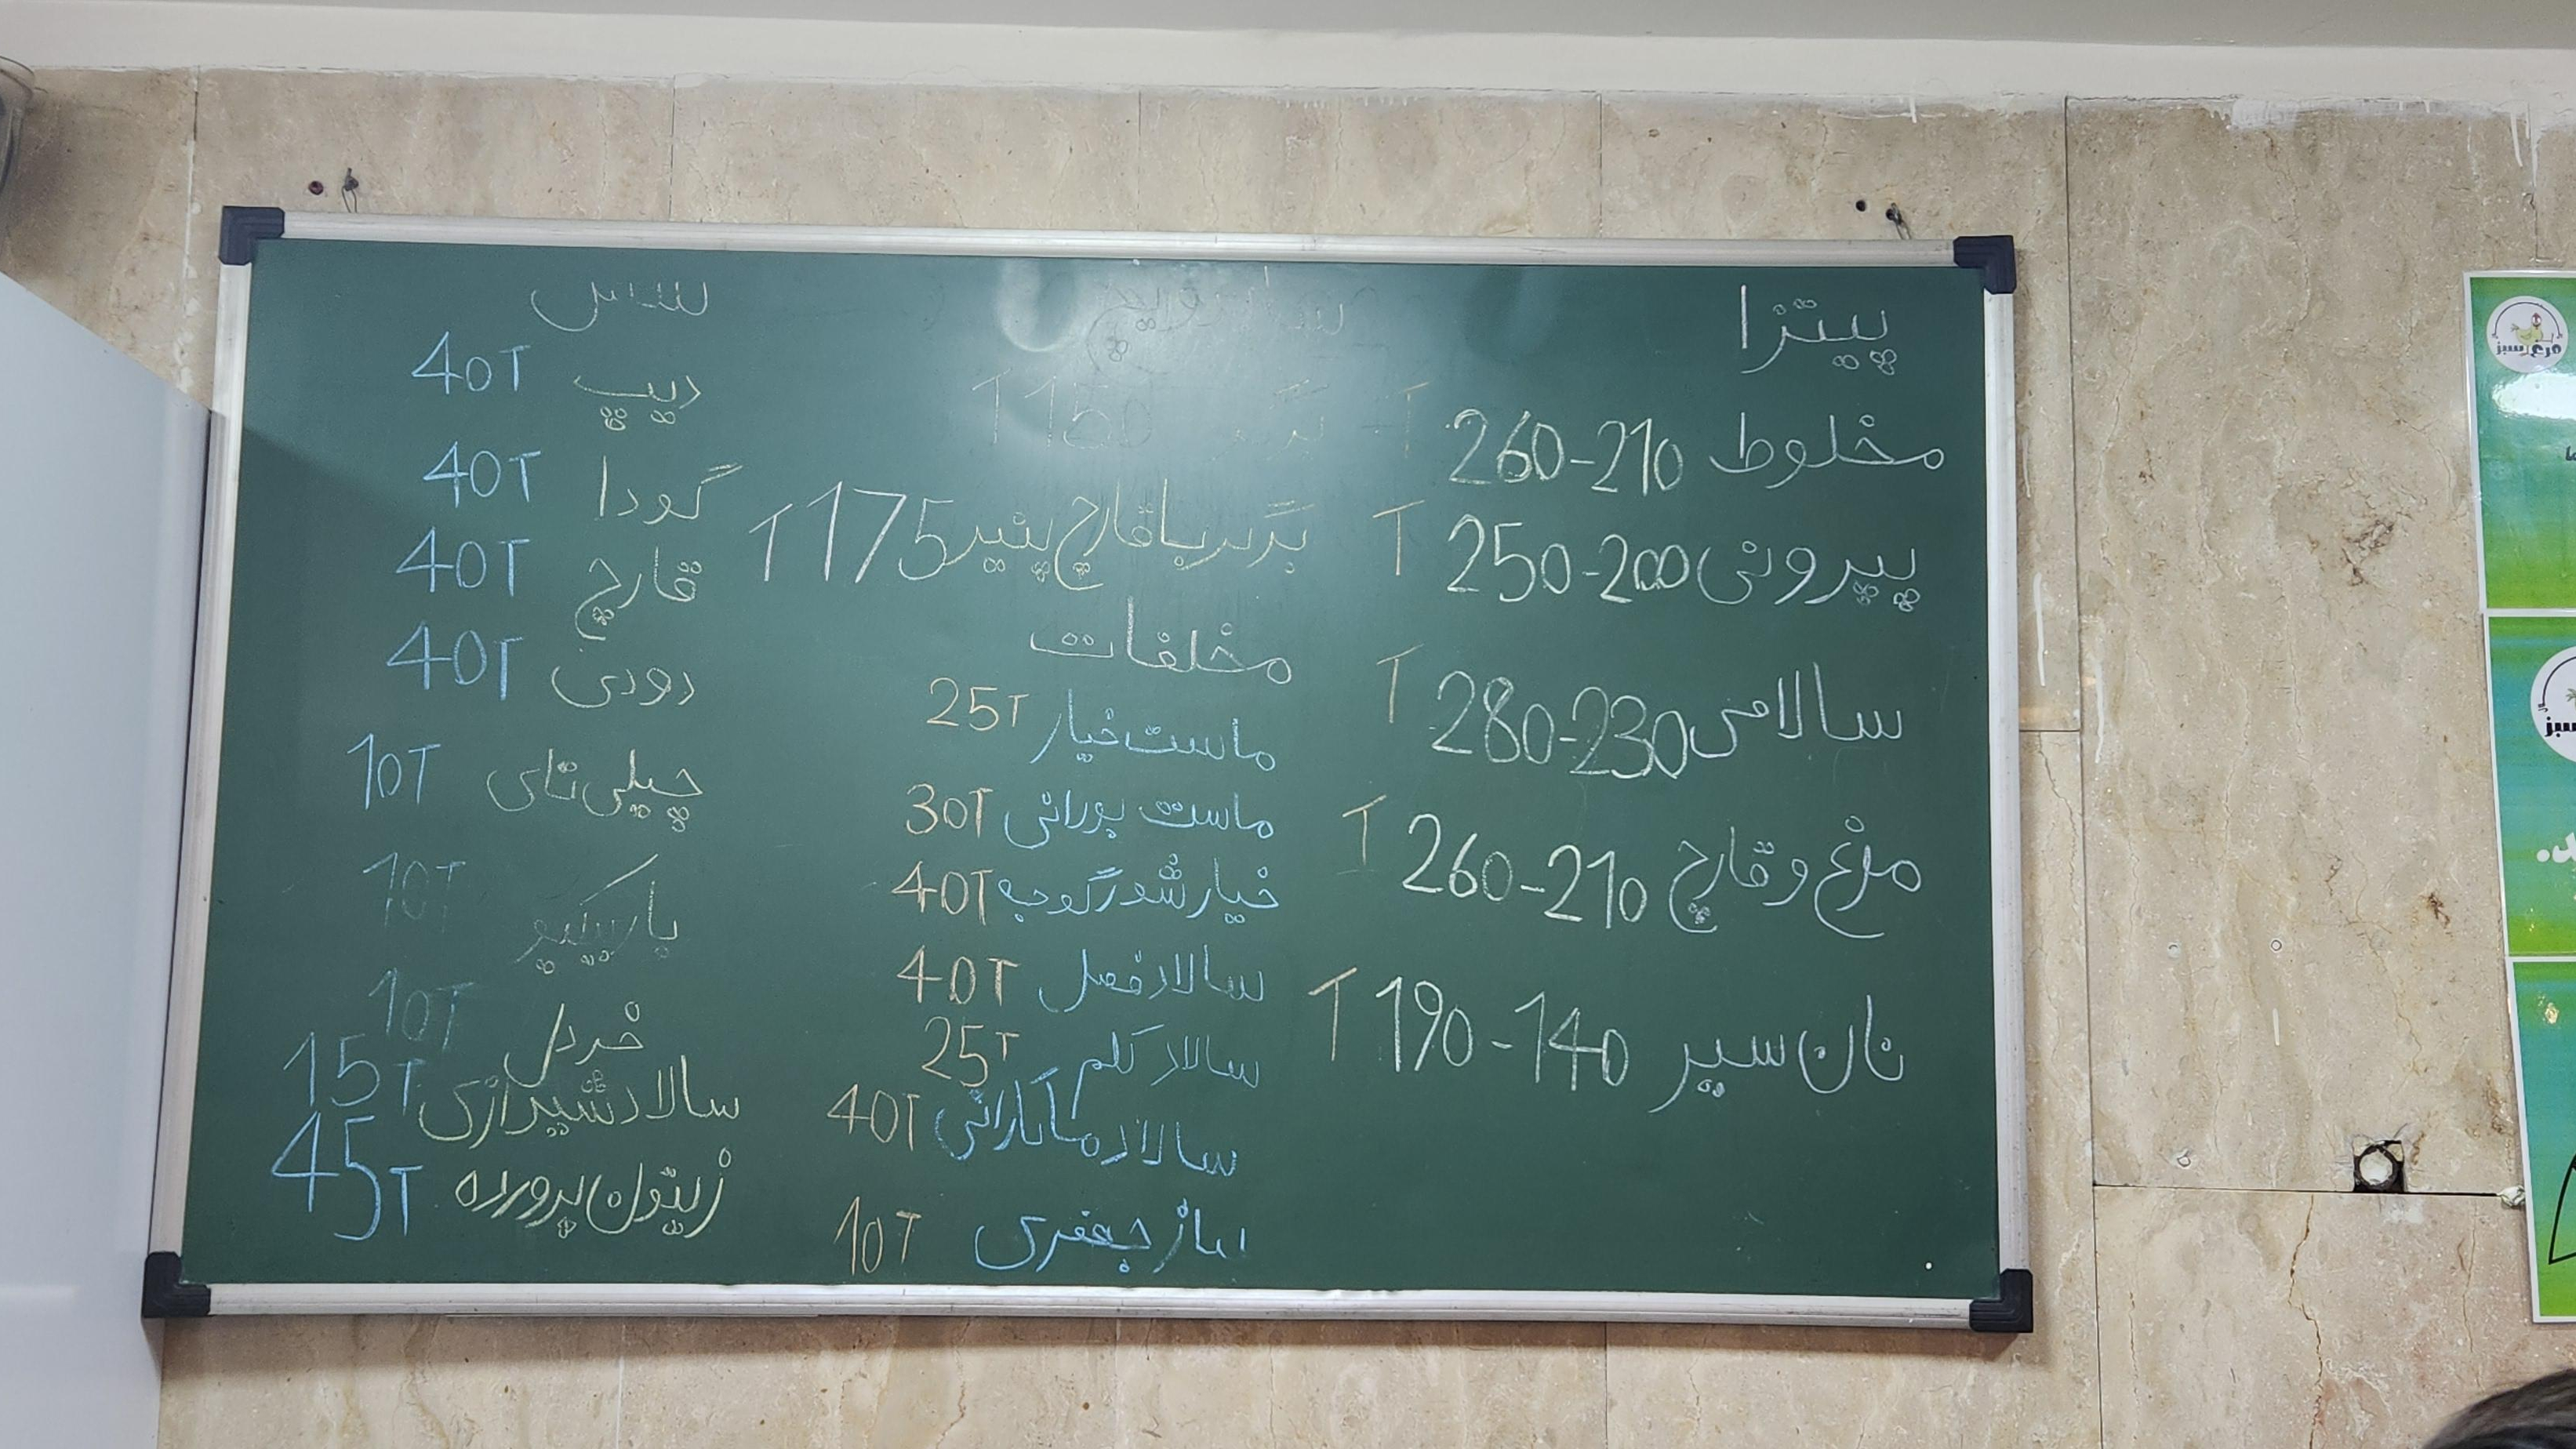 پیتزا
مخلوط 260-210 T
پپرونی 250-200 T
سالامی 280-230 T
مرغ و قارچ 260-210 T
نان سیر 190-140 T
ساندویچ
برگر 150 T
برگر با قارچ پنیر 175 T
مخلفات
ماست خیار 25T
ماست بورانی 30T
خیارشور گوجه 40T
سالاد فصل 40T
سالاد کلم 25T
سالاد ماکارانی 40T
جعفری 10T
سس
دیپ 40T
گودا 40T
قارچ 40T
دودی 40T
چیلی تای 10T
باربیکیو 10T
خردل 10T
سالاد شیرازی 15T
زیتون پرورده 45T
مرغ سبز
سبز